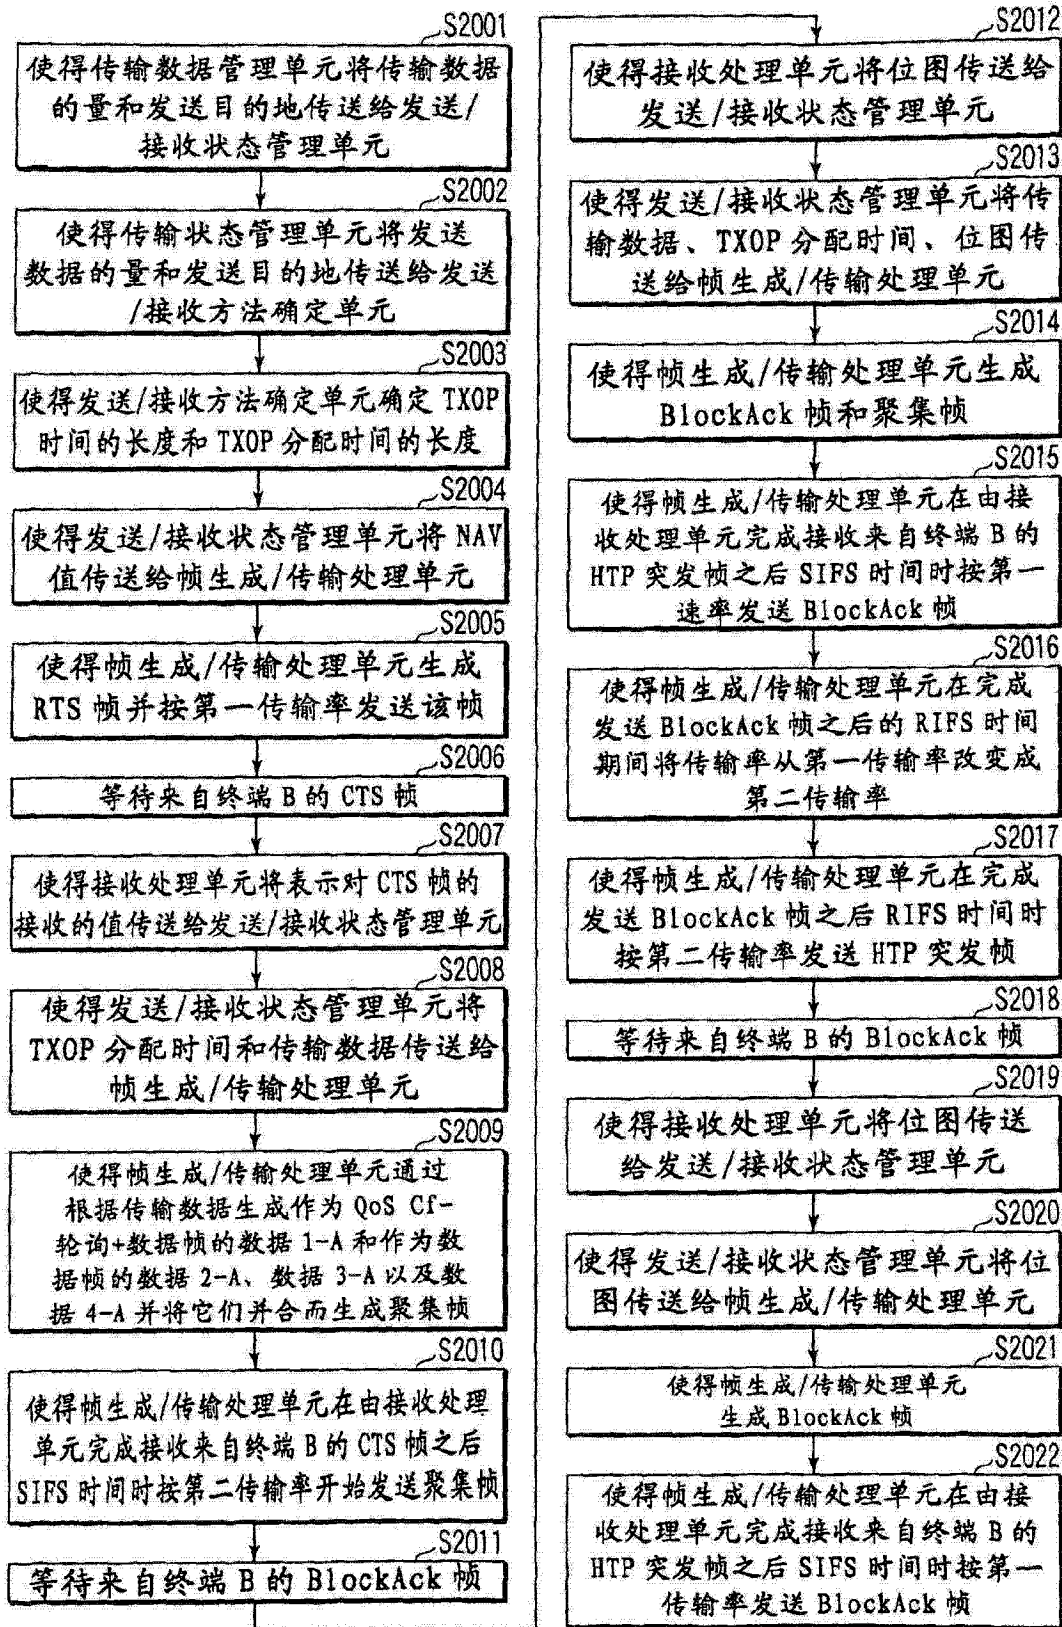 S2001
使得传输数据管理单元将传输数据
的量和发送目的地传送给发送/
接收状态管理单元
S2002
使得传输状态管理单元将发送
数据的量和发送目的地传送给发送
/接收方法确定单元
S2003
使得发送/接收方法确定单元确定 TXOP
时间的长度和 TXOP 分配时间的长度
S2004
使得发送/接收状态管理单元将 NAV
值传送给帧生成/传输处理单元
S2005
使得帧生成/传输处理单元生成
RTS 帧并按第一传输率发送该帧
S2006
等待来自终端 B 的 CTS 帧
S2007
使得接收处理单元将表示对 CTS 帧的
接收的值传送给发送/接收状态管理单元
S2008
使得发送/接收状态管理单元将
TXOP 分配时间和传输数据传送给
帧生成/传输处理单元
S2009
使得帧生成/传输处理单元通过
根据传输数据生成作为 QoS Cf-
轮询+数据帧的数据 1-A 和作为数
据帧的数据 2-A、数据 3-A 以及数
据 4-A 并将它们并合而生成聚集帧
S2010
使得帧生成/传输处理单元在由接收处理
单元完成接收来自终端 B 的 CTS 帧之后
SIFS 时间时按第二传输率开始发送聚集帧
S2011
等待来自终端 B 的 BlockAck 帧
S2012
使得接收处理单元将位图传送给
发送/接收状态管理单元
S2013
使得发送/接收状态管理单元将传
输数据、TXOP 分配时间、位图传
送给帧生成/传输处理单元
S2014
使得帧生成/传输处理单元生成
BlockAck 帧和聚集帧
S2015
使得帧生成/传输处理单元在由接
收处理单元完成接收来自终端 B 的
HTP 突发帧之后 SIFS 时间时按第一
速率发送 BlockAck 帧
S2016
使得帧生成/传输处理单元在完成
发送 BlockAck 帧之后的 RIFS 时间
期间将传输率从第一传输率改变成
第二传输率
S2017
使得帧生成/传输处理单元在完成
发送 BlockAck 帧之后 RIFS 时间时
按第二传输率发送 HTP 突发帧
S2018
等待来自终端 B 的 BlockAck 帧
S2019
使得接收处理单元将位图传送
给发送/接收状态管理单元
S2020
使得发送/接收状态管理单元将位
图传送给帧生成/传输处理单元
S2021
使得帧生成/传输处理单元
生成 BlockAck 帧
S2022
使得帧生成/传输处理单元在由接
收处理单元完成接收来自终端 B 的
HTP 突发帧之后 SIFS 时间时按第一
传输率发送 BlockAck 帧